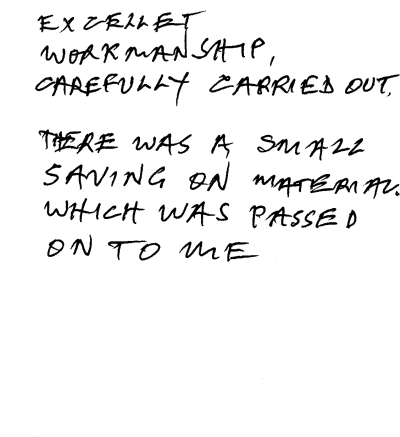 EXCELLET
WORKMANSHIP,
CAREFULLY CARRIED OUT.
THERE WAS A SMALL
SAVING ON MATERIAL.
WHICH WAS PASSED
ON TO ME